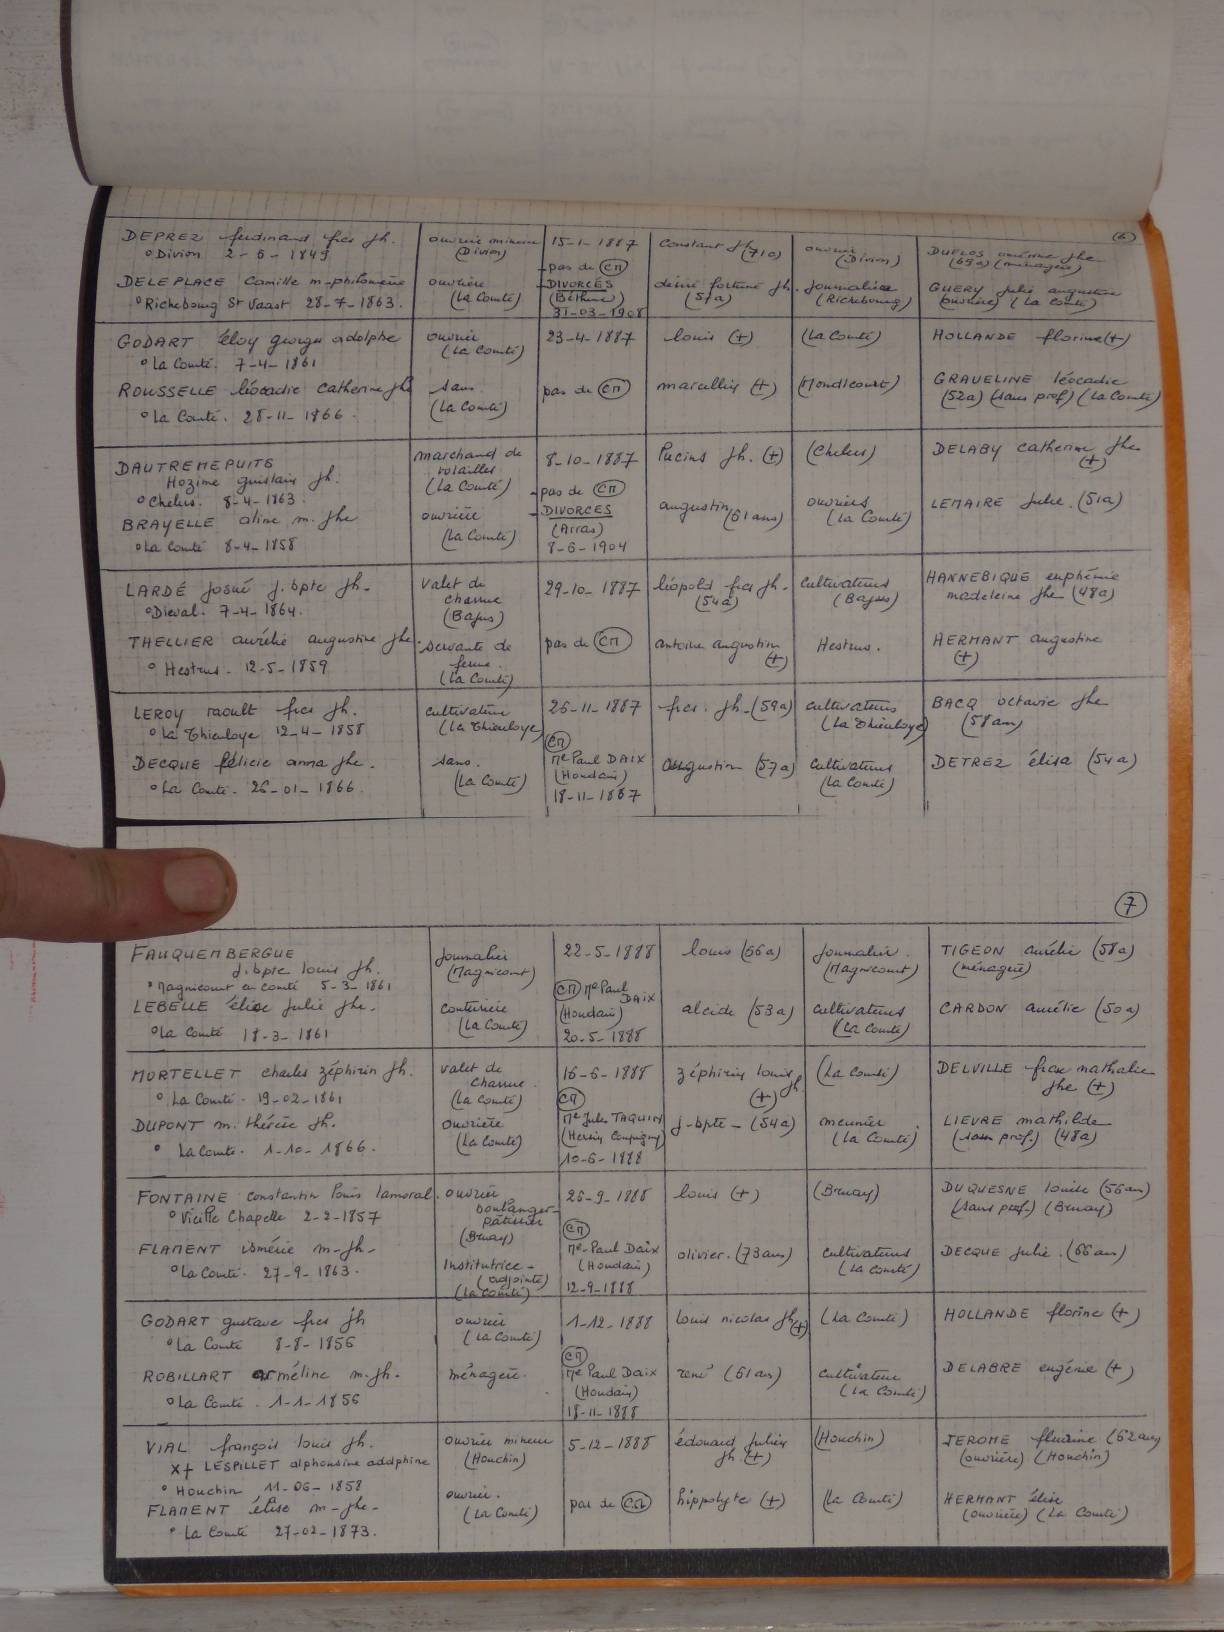 (6)
DEPREZ ferdinand fçois jh. ouvrier mineur (Divion) 15-1-1887 constant jh (71a) ouvrier (Divion) DUFLOS jhe (65a) (ménagère)
° Divion 2-6-1849 - pas de (CM)
DELEPLACE Camille m-philomène ouvrière (La Comté) - DIVORCES (Béthune) 31-03-1908 désiré fortuné jh. (51a) journalier (Richebourg) GUERY Julie augustine (ouvrière) (La Comté)
° Richebourg St Vaast 28-7-1863.
GODART éloy georges adolphe ouvrier (La Comté) 23-4-1887 louis (+) (La Comté) HOLLANDE florine (+)
° La Comté. 7-4-1861
ROUSSELLE léocadie catherine jhe sans (La Comté) pas de (CM) marcellin (+) (Mondicourt) GRAVELINE léocadie (52a) (sans prof) (La Comté)
° La Comté. 28-11-1866.
DAUTREMEPUITS marchand de volailles (La Comté) 8-10-1887 jh. (+) (Chelers) DELABY catherine jhe (+)
Hozime guislain jh.
° Chelers. 8-4-1863. - pas de (CM)
BRAYELLE aline m. jhe ouvrière (La Comté) - DIVORCES (Arras) 8-6-1904 augustin (61 ans) ouvriers (La Comté) LEMAIRE Julie. (51a)
° La Comté 8-4-1858
LARDÉ Josué j. bpte jh- valet de charrue (Bajus) 29-10-1887 léopold fçois jh- (54a) cultivateurs (Bajus) HANNEBIQUE euphémie madeleine jhe (48a)
° Dieval. 7-4-1864.
THELLIER aurélie augustine jhe. servante de ferme. (La Comté) pas de (CM) antoine augustin (+) Hestrus. HERMANT augustine (+)
° Hestrus. 12-5-1859
LEROY raoult fçois jh. cultivateur (La Thieuloye) 26-11-1887 fçois. jh- (59a) cultivateurs (La Thieuloye) BACQ octavie jhe (58 ans)
° La Thieuloye 12-4-1858 (CM)
DECQUE félicie anna jhe. sans. (La Comté) Me Paul DAIX (Houdain) 18-11-1887 augustin (57a) cultivateurs (La Comté) DETREZ élisa (54a)
° La Comté. 26-01-1866.
(7)
FAUQUEMBERGUE journalier (Magnicourt) 22-5-1888 louis (66a) journalier. (Magnicourt) TIGEON aurélie (58a) (ménagère)
j. bpte louis jh.
° Magnicourt en comté 5-3-1861 (CM) Me Paul DAIX
LEBELLE élise Julie jhe. couturière (La Comté) (Houdain) 20-5-1888 alcide (53a) cultivateurs (La Comté) CARDON aurélie (50a)
° La Comté 18-3-1861
MORTELLET charles zéphirin jh. valet de charrue. (La Comté) 16-6-1888 zéphirin louis jh (+) (La Comté) DELVILLE fçoise nathalie jhe (+)
° La Comté. 19-02-1861 (CM)
DUPONT m. thérèse jh. ouvrière (La Comté) Me Jules TAQUIN (Hersin Coupigny) 10-6-1888 j-bpte- (54a) meunier (La Comté) LIEVRE mathilde (sans prof.) (48a)
° La Comté. 1-10-1866.
FONTAINE constantin louis lamoral. ouvrier boulanger-pâtissier (Bruay) 26-9-1888 louis (+) (Bruay) DUQUESNE louise (56 ans) (sans prof.) (Bruay)
° Vieille Chapelle 2-2-1857 (CM)
FLAMENT isménie m-jh- Institutrice- (adjointe) (La Comté) Me-Paul Daix (Houdain) 12-9-1888 olivier. (73 ans) cultivateurs (La Comté) DECQUE Julie. (66 ans)
° La Comté. 27-9-1863.
GODART gustave fçois jh ouvrier (La Comté) 1-12-1888 louis nicolas jh (+) (La Comté) HOLLANDE florine (+)
° La Comté 8-8-1856 (CM)
ROBILLART arméline m-jh- ménagère. Me Paul Daix (Houdain) 18-11-1888 rené (61 ans) cultivateur (La Comté) DELABRE eugénie (+)
° La Comté. 1-1-1856
VIAL françois louis jh. ouvrier mineur (Houchin) 5-12-1888 édouard julien jh. (+) (Houchin) JEROME (62 ans) (ouvrière) (Houchin)
x+ LESPILLET alphonsine adolphine
° Houchin 11-06-1858
FLAMENT élise m-jhe- ouvrière. (La Comté) pas de (CM) hippolyte (+) (La Comté) HERMANT élise (ouvrière) (La Comté)
° La Comté 27-02-1873.